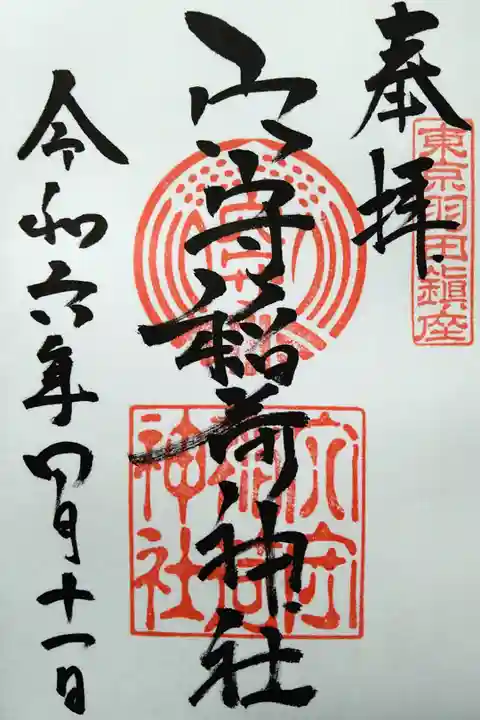 奉拝
東京羽田鎮座
穴守稲荷神社
穴守稲荷神社
令和六年四月十一日